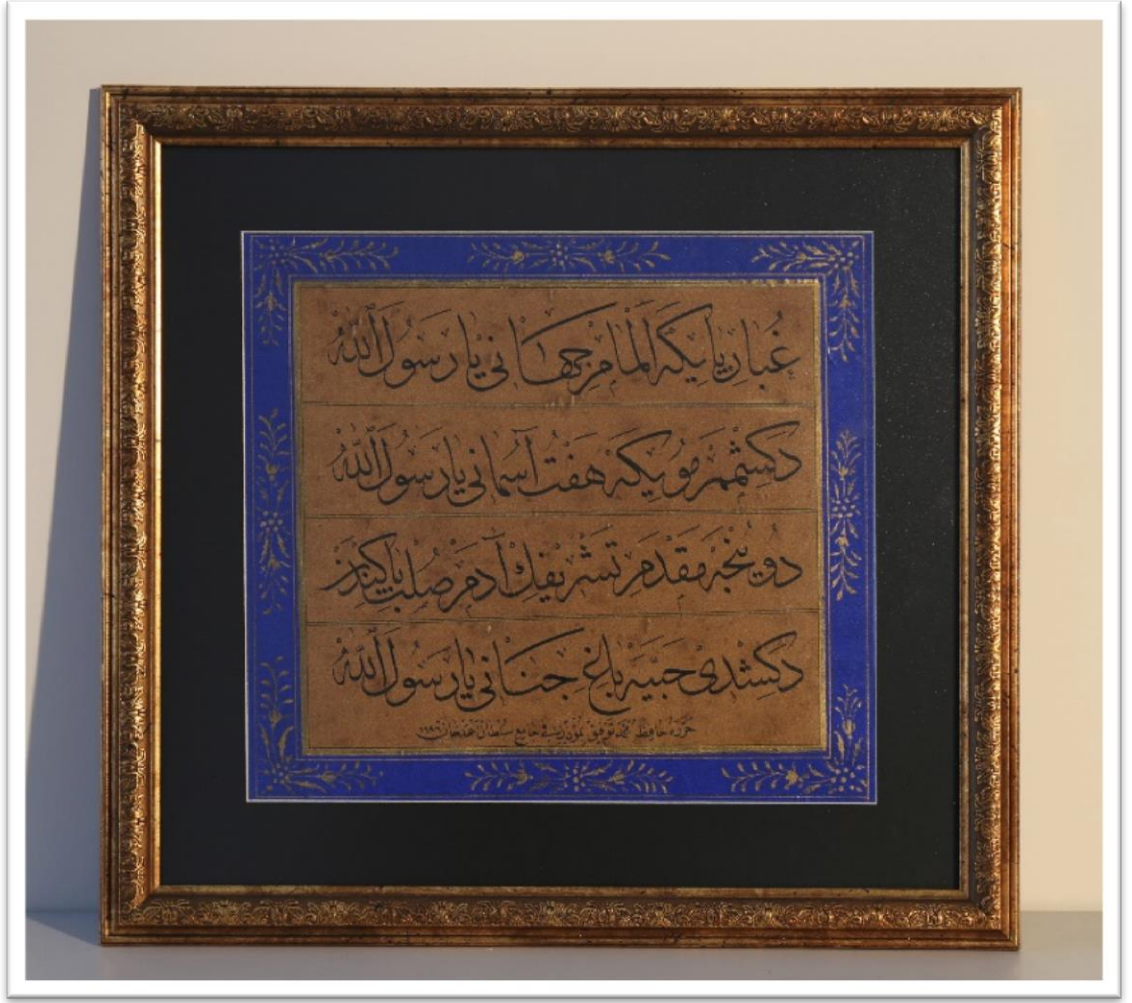 غُبارِ پايكه المام جهانى يا رسول الله
دكشمم مويكه هفت آسمانى يا رسول الله
دوينجه مقدم تشريفك آدم صلب پاكندن
دكشدى حبيه باغ جنانى يا رسول الله
حرره حافظ محمد توفيق في جامع سلطان احمد خان